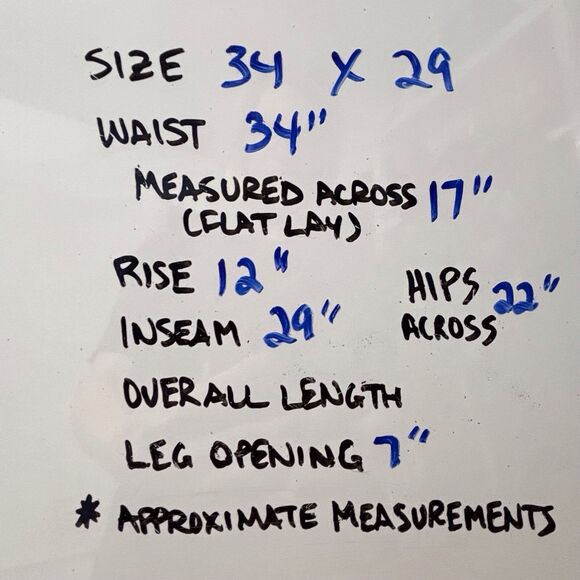 SIZE 34 X 29
WAIST 34"
MEASURED ACROSS 17"
(FLAT LAY)
RISE 12"
HIPS 22"
ACROSS
INSEAM 29"
OVERALL LENGTH
LEG OPENING 7"
* APPROXIMATE MEASUREMENTS